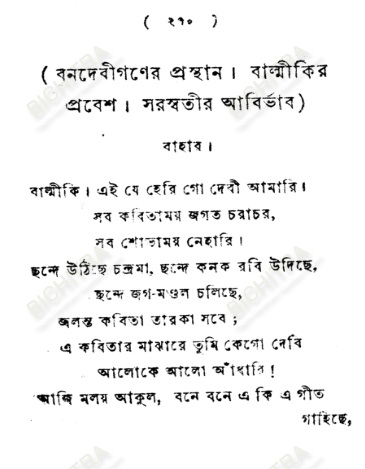 ( ২১০ )
( বনদেবীগণের প্রস্থান। বাল্মীকির
প্রবেশ। সরস্বতীর আবির্ভাব)
বাহার।
বাল্মীকি। এই যে হেরি গো দেবী আমারি।
সব কবিতাময় জগত চরাচর,
সব শোভাময় নেহারি।
ছন্দে উঠিছে চন্দ্রমা, ছন্দে কনক রবি উদিছে,
ছন্দে জগ-মণ্ডল চলিছে,
জলন্ত কবিতা তারকা সবে;
এ কবিতার মাঝারে তুমি কেগো দেবি
আলোকে আলো আঁধারি!
আজি মলয় আকুল, বনে বনে এ কি এ গীত
গাহিছে,